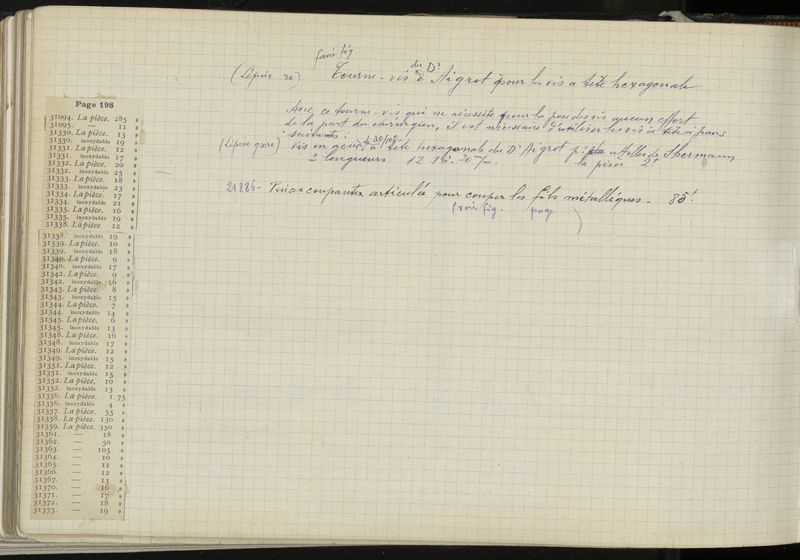 Page 198
31094. La pièce. 285 »
31095. — 11 »
31330. La pièce. 13 »
31330. inoxydable 19 »
31331. La pièce. 12 »
31331. inoxydable 17 »
31332. La pièce. 20 »
31332. inoxydable 25 »
31333. La pièce. 18 »
31333. inoxydable 23 »
31334. La pièce. 17 »
31334. inoxydable 21 »
31335. La pièce. 16 »
31335. inoxydable 19 »
31338. La pièce 12 »
31338. inoxydable 19 »
31339. La pièce. 10 »
31339. inoxydable 18 »
31340. La pièce. 9 »
31340. inoxydable 17 »
31342. La pièce. 9 »
31342. inoxydable 16 »
31343. La pièce. 8 »
31343. inoxydable 15 »
31344. La pièce. 7 »
31344. inoxydable 14 »
31345. La pièce. 6 »
31345. inoxydable 13 »
31348. La pièce. 16 »
31348. inoxydable 17 »
31349. La pièce. 12 »
31349. inoxydable 15 »
31351. La pièce. 12 »
31351. inoxydable 15 »
31352. La pièce, 10 »
31352. inoxydable 13 »
31356. La pièce. 1 75
31356. inoxydable 4 »
31357. La pièce. 55 »
31358. La pièce. 130 »
31359. La pièce. 350 »
31361. — 18 »
31362. — 50 »
31363. — 105 »
31364. — 10 »
31365. — 11 »
31366. — 12 »
31367. — 13 »
31370. — 16 »
31371. — 17 »
31372. — 18 »
31373. — 19 »
fig
(Lépine ro) Tourne-vis du Dr Aigrot pour les vis à tête hexagonale
Avec ce tourne-vis qui ne nécessite pour la pose des vis aucun effort
de la part du chirurgien, il est nécessaire d'utiliser les vis à tête à pans
suivantes :
(Lépine) Vis en acier à tête hexagonale du Dr Aigrot pr attelles de Shermann
3 longueurs. 12. 16. 20 m/m. la pièce 2f
21886 - Pince coupante articulée pour couper les fils métalliques - 85f
(voir fig. page )